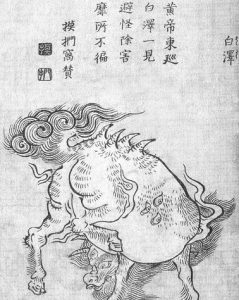 白澤
黄帝東巡
白澤一見
避怪除害
靡所不徧
摸捫窩賛